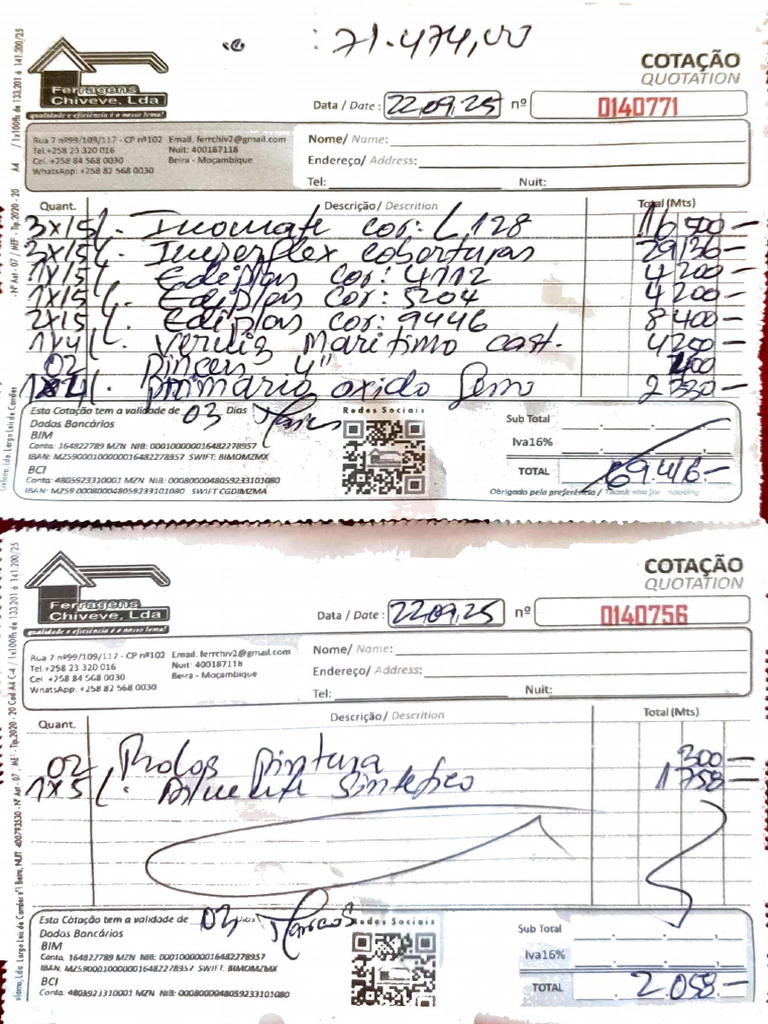 : 71.474,00
COTAÇÃO
QUOTATION
Ferragens
Chiveve, Lda
qualidade e eficiência é o nosso lema!
Data / Date : 22.09.25 nº 0140771
Rua 7 nº99/109/117 - CP nº102 Email. ferrchiv2@gmail.com
Tel.+258 23 320 016 Nuit: 400187118
Cel. +258 84 568 0030 Beira - Moçambique
WhatsApp: +258 82 568 0030
Nome/ Name:
Endereço/ Address:
Tel: Nuit:
Quant. Descrição/ Descrition Total (Mts)
3x15L. Inomate cor: L 128 16 500 -
3x15L. Imperflex coberturas 29 136 -
1x15L. Ediplas cor: 4112 4 200 -
1x15L. Ediplas cor: 5204 4 200 -
2x15L. Ediplas cor: 9446 8 400 -
1x4L. Verniz Maritimo cast. 4 250
02 Pinceis 4" 400
1x4L. primario oxido ferro 2 330 -
Esta Cotação tem a validade de 03 Dias
Redes Sociais
Dados Bancários
BIM
Conta: 164822789 MZN NIB: 000100000016482278957
IBAN: MZ59000100000016482278957 SWIFT: BIMOMZMX
BCI
Conta: 48059233310001 MZN NIB: 000800048059233101080
IBAN: MZ59 000800048059233101080 SWIFT CGDIMZMA
Sub Total
Iva16%
TOTAL 69.416.-
Obrigado pela preferência /
COTAÇÃO
QUOTATION
Ferragens
Chiveve, Lda
qualidade e eficiência é o nosso lema!
Data / Date : 22.09.25 nº 0140756
Rua 7 nº99/109/117 - CP nº102 Email. ferrchiv2@gmail.com
Tel.+258 23 320 016 Nuit: 400187118
Cel. +258 84 568 0030 Beira - Moçambique
WhatsApp. +258 82 568 0030
Nome/ Name:
Endereço/ Address:
Tel: Nuit:
Quant. Descrição/ Descrition Total (Mts)
02 Rolos pintura 300 -
1x5L. Diluente Sintetico 1 758 -
Esta Cotação tem a validade de 03 Dias Marcos
Redes Sociais
Dados Bancários
BIM
Conta, 164822789 MZN NIB: 000100000016482278957
IBAN. MZ59000100000016482278957 SWIFT: BIMOMZMX
BCI
Conta: 48059233310001 MZN NIB: 000800048059233101080
Sub Total
Iva16%
TOTAL 2.058 -